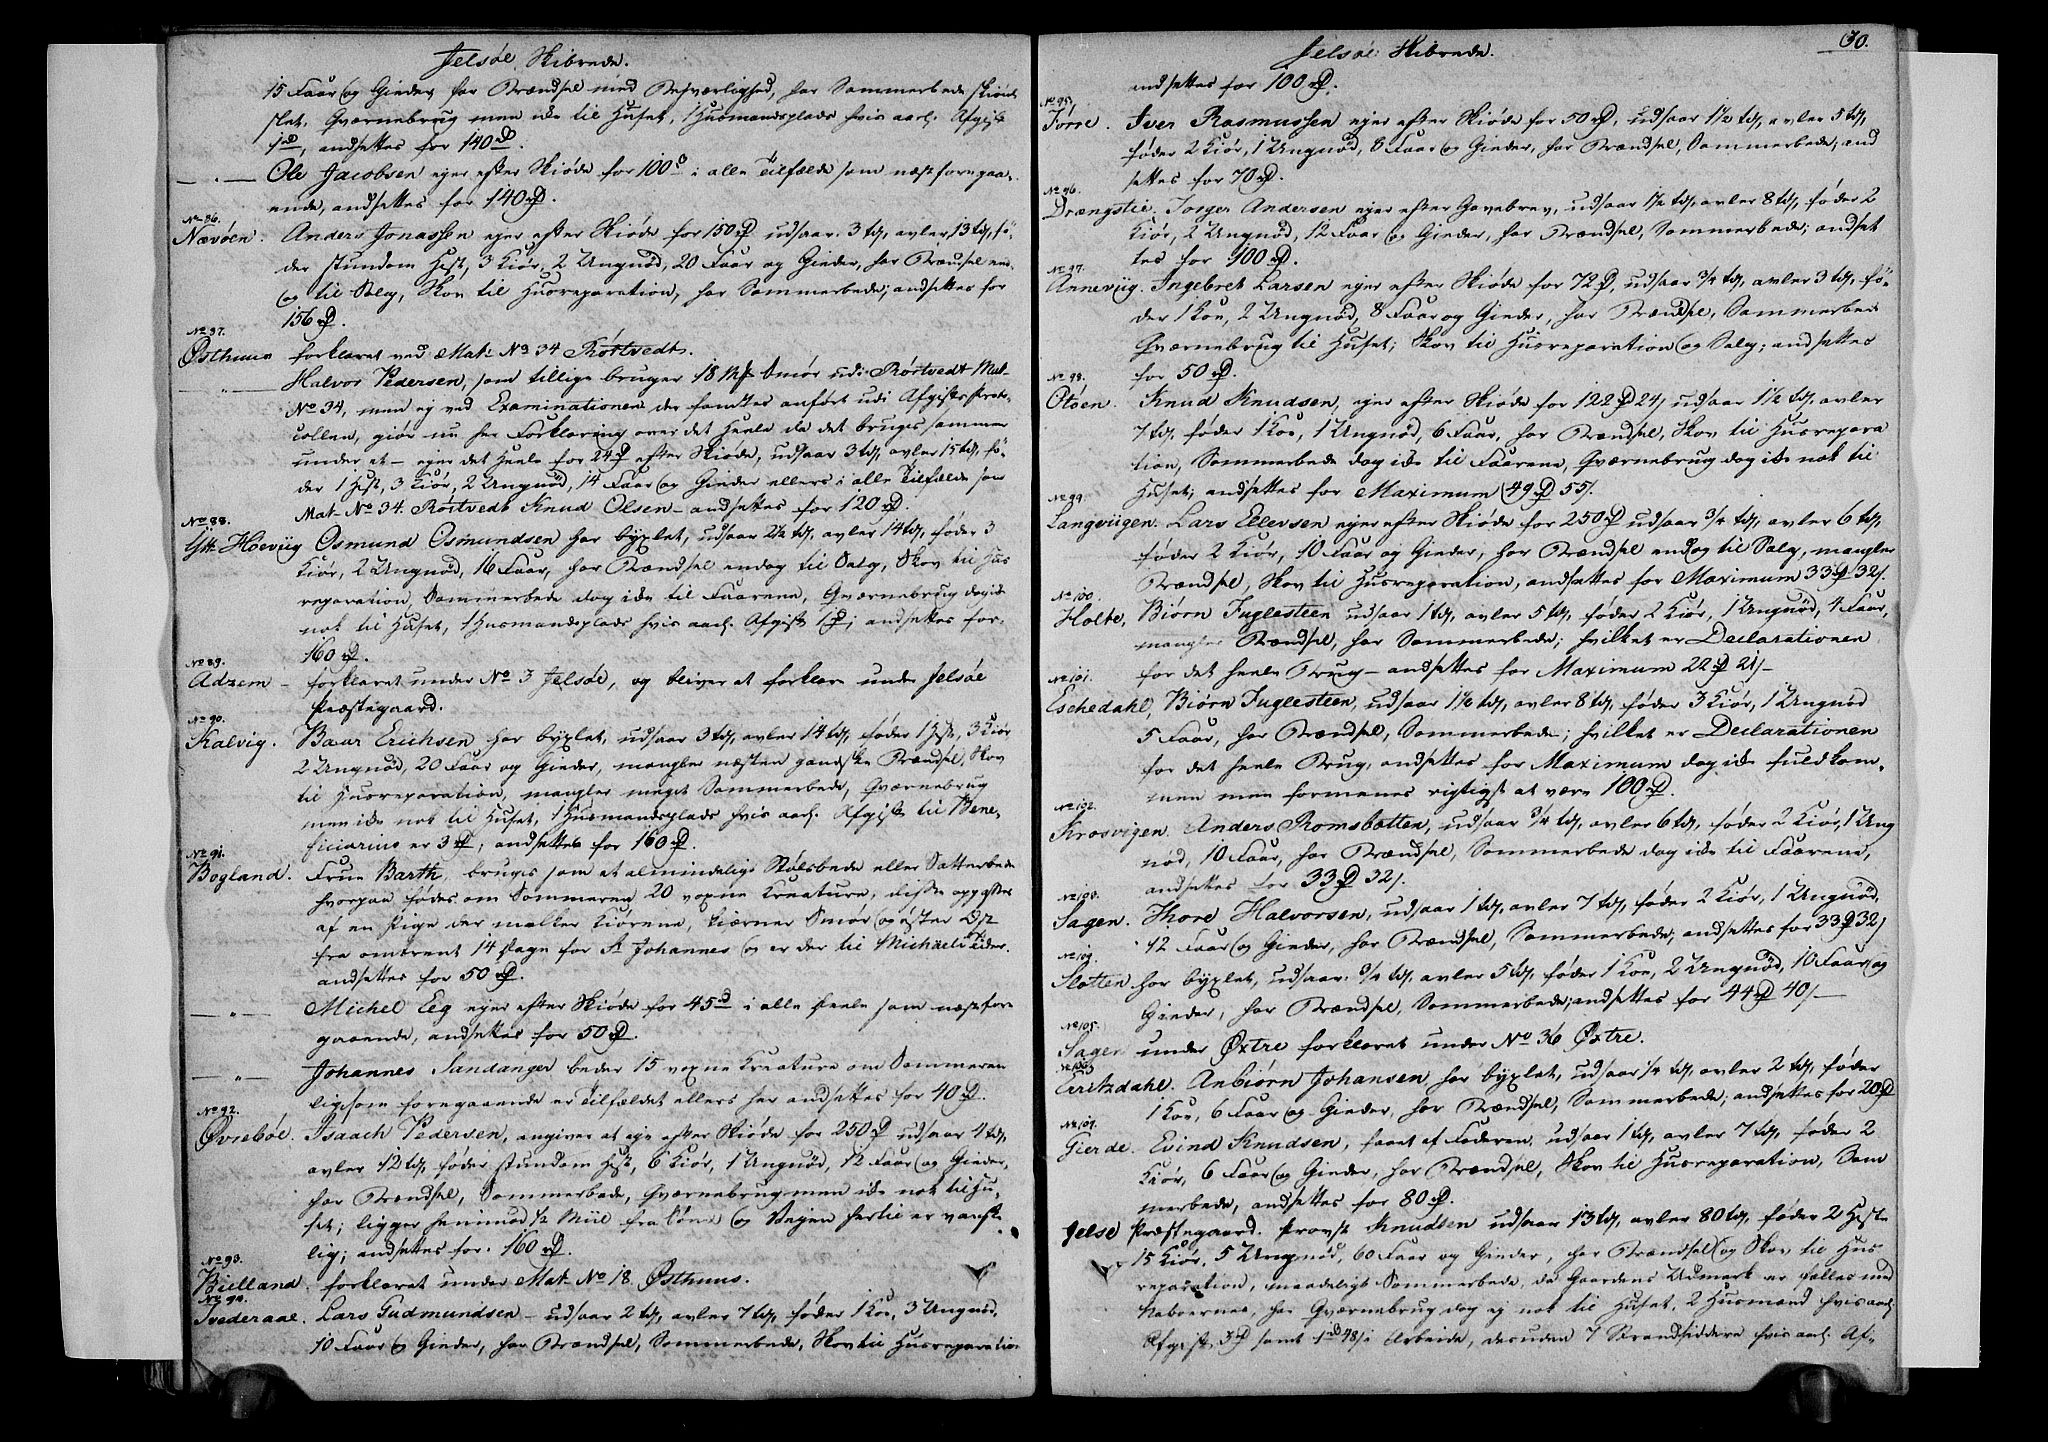 Jelsøe Skibrede.
15 Faar og Gieder, har Brændsel med Besværlighed, har Sommerbede
slet, Qværnebrug men ide til Huset, 1 Husmandsplads hvis aarl. Afgift
1 rd, ansettes for 140 rd.
— " — Ole Jacobsen ejer efter Skiøde for 100 rd i alle Tilfælde som næstforegaa-
ende, ansettes for 140 rd.
No 86.
Nævøen. Anders Jonassen ejer efter Skiøde for 150 rd udsaar 3 td, avler 13 td, fø-
der stundom Hest, 3 Kiør, 2 Ungnød, 20 Faar og Gieder, har Brændsel end
og til Salg, Skov til Husreparation, har Sommerbede; andsettes for
156 rd.
No 87.
Østhuus forklaret ved Mat. No 34 Røstvedt.
— " — Halvor Pedersen, som tillige bruger 18 Mk Smør udi Røstvedt Mat-
No 34, men ej ved Examinationen der fandtes anført udi Afgifts Prot-
collen, giør nu her Forklaring over det Heele da det bruges sammen
under et — ejer det Heele for 24 rd efter Skiøde, udsaar 3 td, avler 15 td, fø-
der 1 Hest, 3 Kiør, 2 Ungnød, 14 Faar og Gieder ellers i alle Tilfælde som
Mat- No 34. Røstvedt Knud Olsen — andsettes for 120 rd.
No 88.
Ytt. Høeviig Osmund Osmundsen har byxlet, udsaar 2½ td, avler 14 td, føder 3
Kiør, 2 Ungnød, 16 Faar, har Brændsel endog til Salg, Skov til Hus
reparation, Sommerbede dog ide til Faarene, Qværnebrug dog ide
nok til Huset, 1 Husmandsplads hvis aarl. Afgift 1 rd; andsettes for
160 rd.
No 89.
Adzem — forklaret under No 3 Jelsøe, og bliver at forklare under Jelsøe
Præstegaard.
No 90.
Kalvig. Baar Erichsen har byxlet, udsaar 3 td, avler 14 td, føder 1 Hest, 3 Kiør
2 Ungnød, 20 Faar og Gieder, mangler næsten gandske Brændsel, Skov
til Husreparation, mangler meget Sommerbede, Qværnebrug
men ide nok til Huset, 1 Husmandsplads hvis aarl. Afgift til Bene-
ficiarius er 3 rd, andsettes for 160 rd.
No 91.
Bogland. Frue Barth, bruges som et almindelig Stølsbede eller Sætterbede
hvorpaa fødes om Sommeren 20 voxne Kreature, disse oppasses
af en Pige der malker Kiørene, kiærner Smør og yster Ost
fra omtrent 14 Dage for St Johannes og er der til Michaeli Tider.
andsettes for 50 rd.
— " — Michel Eeg ejer efter Skiøde for 45 rd i alle Deele som næstfore
gaaende, andsettes for 50 rd.
— " — Johannes Sandanger beder 15 voxne Kreature om Sommeren
ligesom foregaaende er Tilfældet ellers her andsettes for 40 rd.
No 92.
Øvrebøe. Isaach Pedersen, angiver at eje efter Skiøde for 250 rd udsaar 4 td,
avler 12 td, føder stundom Hest, 6 Kiør, 1 Ungnød, 12 Faar og Gieder,
har Brændsel, Sommerbede, Qværnebrug men ide nok til Hu-
set; ligger henimod ½ Miil fra Søen og Vejen hertil er vanske
lig; andsettes for 160 rd.
No 93.
Bielland. forklaret under Mat No 18. Østhuus.
No 94.
Ivederaae. Lars Gudmundsen — udsaar 2 td, avler 7 td, føder 1 Koe, 3 Ungnød,
10 Faar og Gieder, har Brændsel, Sommerbede, Skov til Husreparation
Jelsøe Skibrede.
60.
andsettes for 100 rd.
No 95.
Tørre. Iver Rasmussen ejer efter Skiøde for 50 rd, udsaar 1½ td, avler 5 td,
føder 2 Kiør, 1 Ungnød, 8 Faar og Gieder, har Brændsel, Sommerbede; and
settes for 70 rd.
No 96.
Drængstie. Torger Andersen ejer efter Gavebrev, udsaar 1½ td, avler 8 td, føder 2
Kiør, 2 Ungnød, 12 Faar og Gieder, har Brændsel, Sommerbede; andset
tes for 100 rd.
No 97.
Anneviig. Ingebret Larsen ejer efter Skiøde for 72 rd, udsaar ¾ td, avler 3 td, fø-
der 1 Koe, 2 Ungnød, 8 Faar og Gieder, har Brændsel, Sommerbede
Qværnebrug til Huset; Skov til Husreparation og Salg; andsettes
for 50 rd.
No 98.
Otøen. Knud Knudsen, ejer efter Skiøde for 122 rd 24 s, udsaar 1½ td, avler
7 td, føder 1 Koe, 1 Ungnød, 6 Faar, har Brændsel, Skov til Husrepara
tion, Sommerbede dog ide til Faarene, Qværnebrug dog ide nok til
Huset; andsettes for Maximum 49 rd 55 s.
No 99.
Langviigen. Lars Ellevsen ejer efter Skiøde for 250 rd udsaar ¾ td, avler 6 td,
føder 2 Kiør, 10 Faar og Gieder, har Brændsel endog til Salg, mangler
Brændsel, Skov til Husreparation, andsættes for Maximum 33 rd 32 s.
No 100.
Holte, Biørn Fuglesteen udsaar 1 td, avler 5 td, føder 2 Kiør, 1 Ungnød, 4 Faar,
mangler Brændsel, har Sommerbede; hvilket er Declarationen
for det heele Brug — andsettes for Maximum 22 rd 21 s —
No 101.
Eschedahl, Biørn Fuglesteen, udsaar 1½ td, avler 8 td, føder 3 Kiør, 1 Ungnød
5 Faar, har Brændsel, Sommerbede; hvilket er Declarationen
for det heele Brug, andsettes for Maximum dog ide fuldkom-
men men formenes rigtigst at være 100 rd.
No 102.
Krosvigen. Anders Romsbotten, udsaar ¾ td, avler 6 td, føder 2 Kiør, 1 Ung
nød, 10 Faar, har Brændsel, Sommerbede dog ide til Faarene,
andsettes for 33 rd 32 s.
No 103.
Sagen. Thore Halvorsen, udsaar 1 td, avler 7 td, føder 2 Kiør, 1 Ungnød,
12 Faar og Gieder, har Brændsel, Sommerbede; andsettes for 33 rd 32 s
No 104.
Slotten har byxlet, udsaar ¾ td, avler 5 td, føder 1 Koe, 2 Ungnød, 10 Faar og
Gieder, har Brændsel, Sommerbede; andsettes for 44 rd 40 s —
No 105.
Sagen under Øxtre forklaret under No 36 Øxtre.
No 106
Eeritzdahl. Anbiørn Johansen, har byxlet, udsaar ¼ td, avler 2 td, føder
1 Koe, 6 Faar og Gieder, har Brændsel, Sommerbede; andsettes for 20 rd
No 107.
Gierde. Evind Knudsen, faaet af Faderen, udsaar 1 td, avler 7 td, føder 2
Kiør, 6 Faar og Gieder, har Brændsel, Skov til Husreparation, Som
merbede, andsettes for 80 rd.
Jelse Præstegaard. Provst Knudsen udsaar 13 td, avler 80 td, føder 2 Heste
15 Kiør, 5 Ungnød, 60 Faar og Gieder, har Brændsel og Skov til Hus
reparation, maadeligt Sommerbede, da Gaardens Udmark er fælles med
Naboernes, har Qværnebrug dog ej nok til Huset, 2 Husmænd hvis aarl.
Afgift 3 rd samt 1 rd 48 s i Arbeide, desuden 7 Strandsiddere hvis aarl. Af-